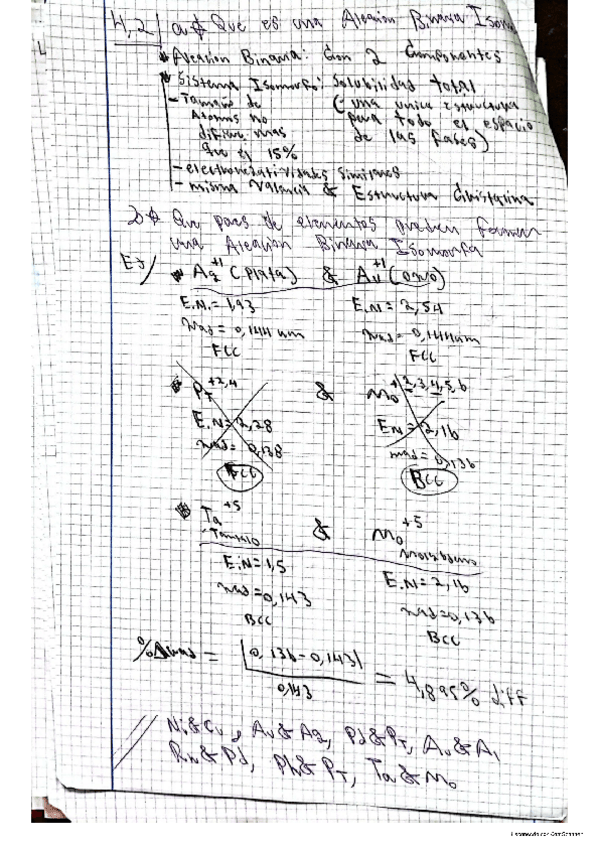 4,2 a) Que es una Aleacion Binaria Isomo
Aleacion Binaria: Con 2 Componentes
Sistema Isomorfo: Solubilidad total
- Tamaño de (- una unica estructura
Atomos no para todo el espacio
difiera mas de las fases)
que el 15%
- electronegatividades similares
- misma Valencia & Estructura Cristalina
b) Que pares de elementos pueden formar
una Aleacion Binaria Isomorfa
EJ/
Ag+1 (plata) & Au+1 (oro)
E.N.= 1,93 E.N= 2,54
rad= 0,144 nm rad= 0,144nm
FCC FCC
PT+2,4 & Mo+2,3,4,5,6
E.N= 2,28 EN= 2,16
rad= 0,138 rad= 0,136
FCC BCC
Ta+5 & Mo+5
Tantalo Molibdeno
E.N=1,5 E.N= 2,16
rad=0,143 rad=0,136
BCC BCC
%Δrad = |0,136-0,143| / 0,143 = 4,895% diff
Ni&Cu, Au&Ag, Pd&PT, Au&Al
Rh&Pd, Rh&PT, Ta&Mo